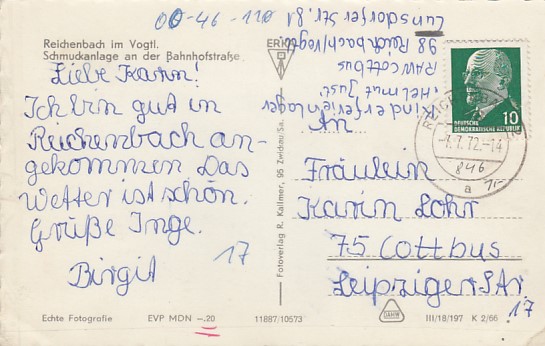 00-46-110
Reichenbach im Vogtl.
Schmuckanlage an der Bahnhofstraße
Liebe Karin!
Ich bin gut in
Reichenbach an-
gekommen Das
Wetter ist schön.
Grüße Inge.
Birgit
17
Echte Fotografie EVP MDN -.20 11887/10573
Fotoverlag R. Kallmer, 95 Zwickau/Sa.
Kinderferienlager
"Helmut Just"
RAW Cottbus
98 Reichbach/Vogtl
Str. 81
10
DEUTSCHE
DEMOKRATISCHE REPUBLIK
72.-14
a
Fräulein
Karin Lohr
75 Cottbus
Leipziger Str.
17
DAHW
III/18/197 K 2/66